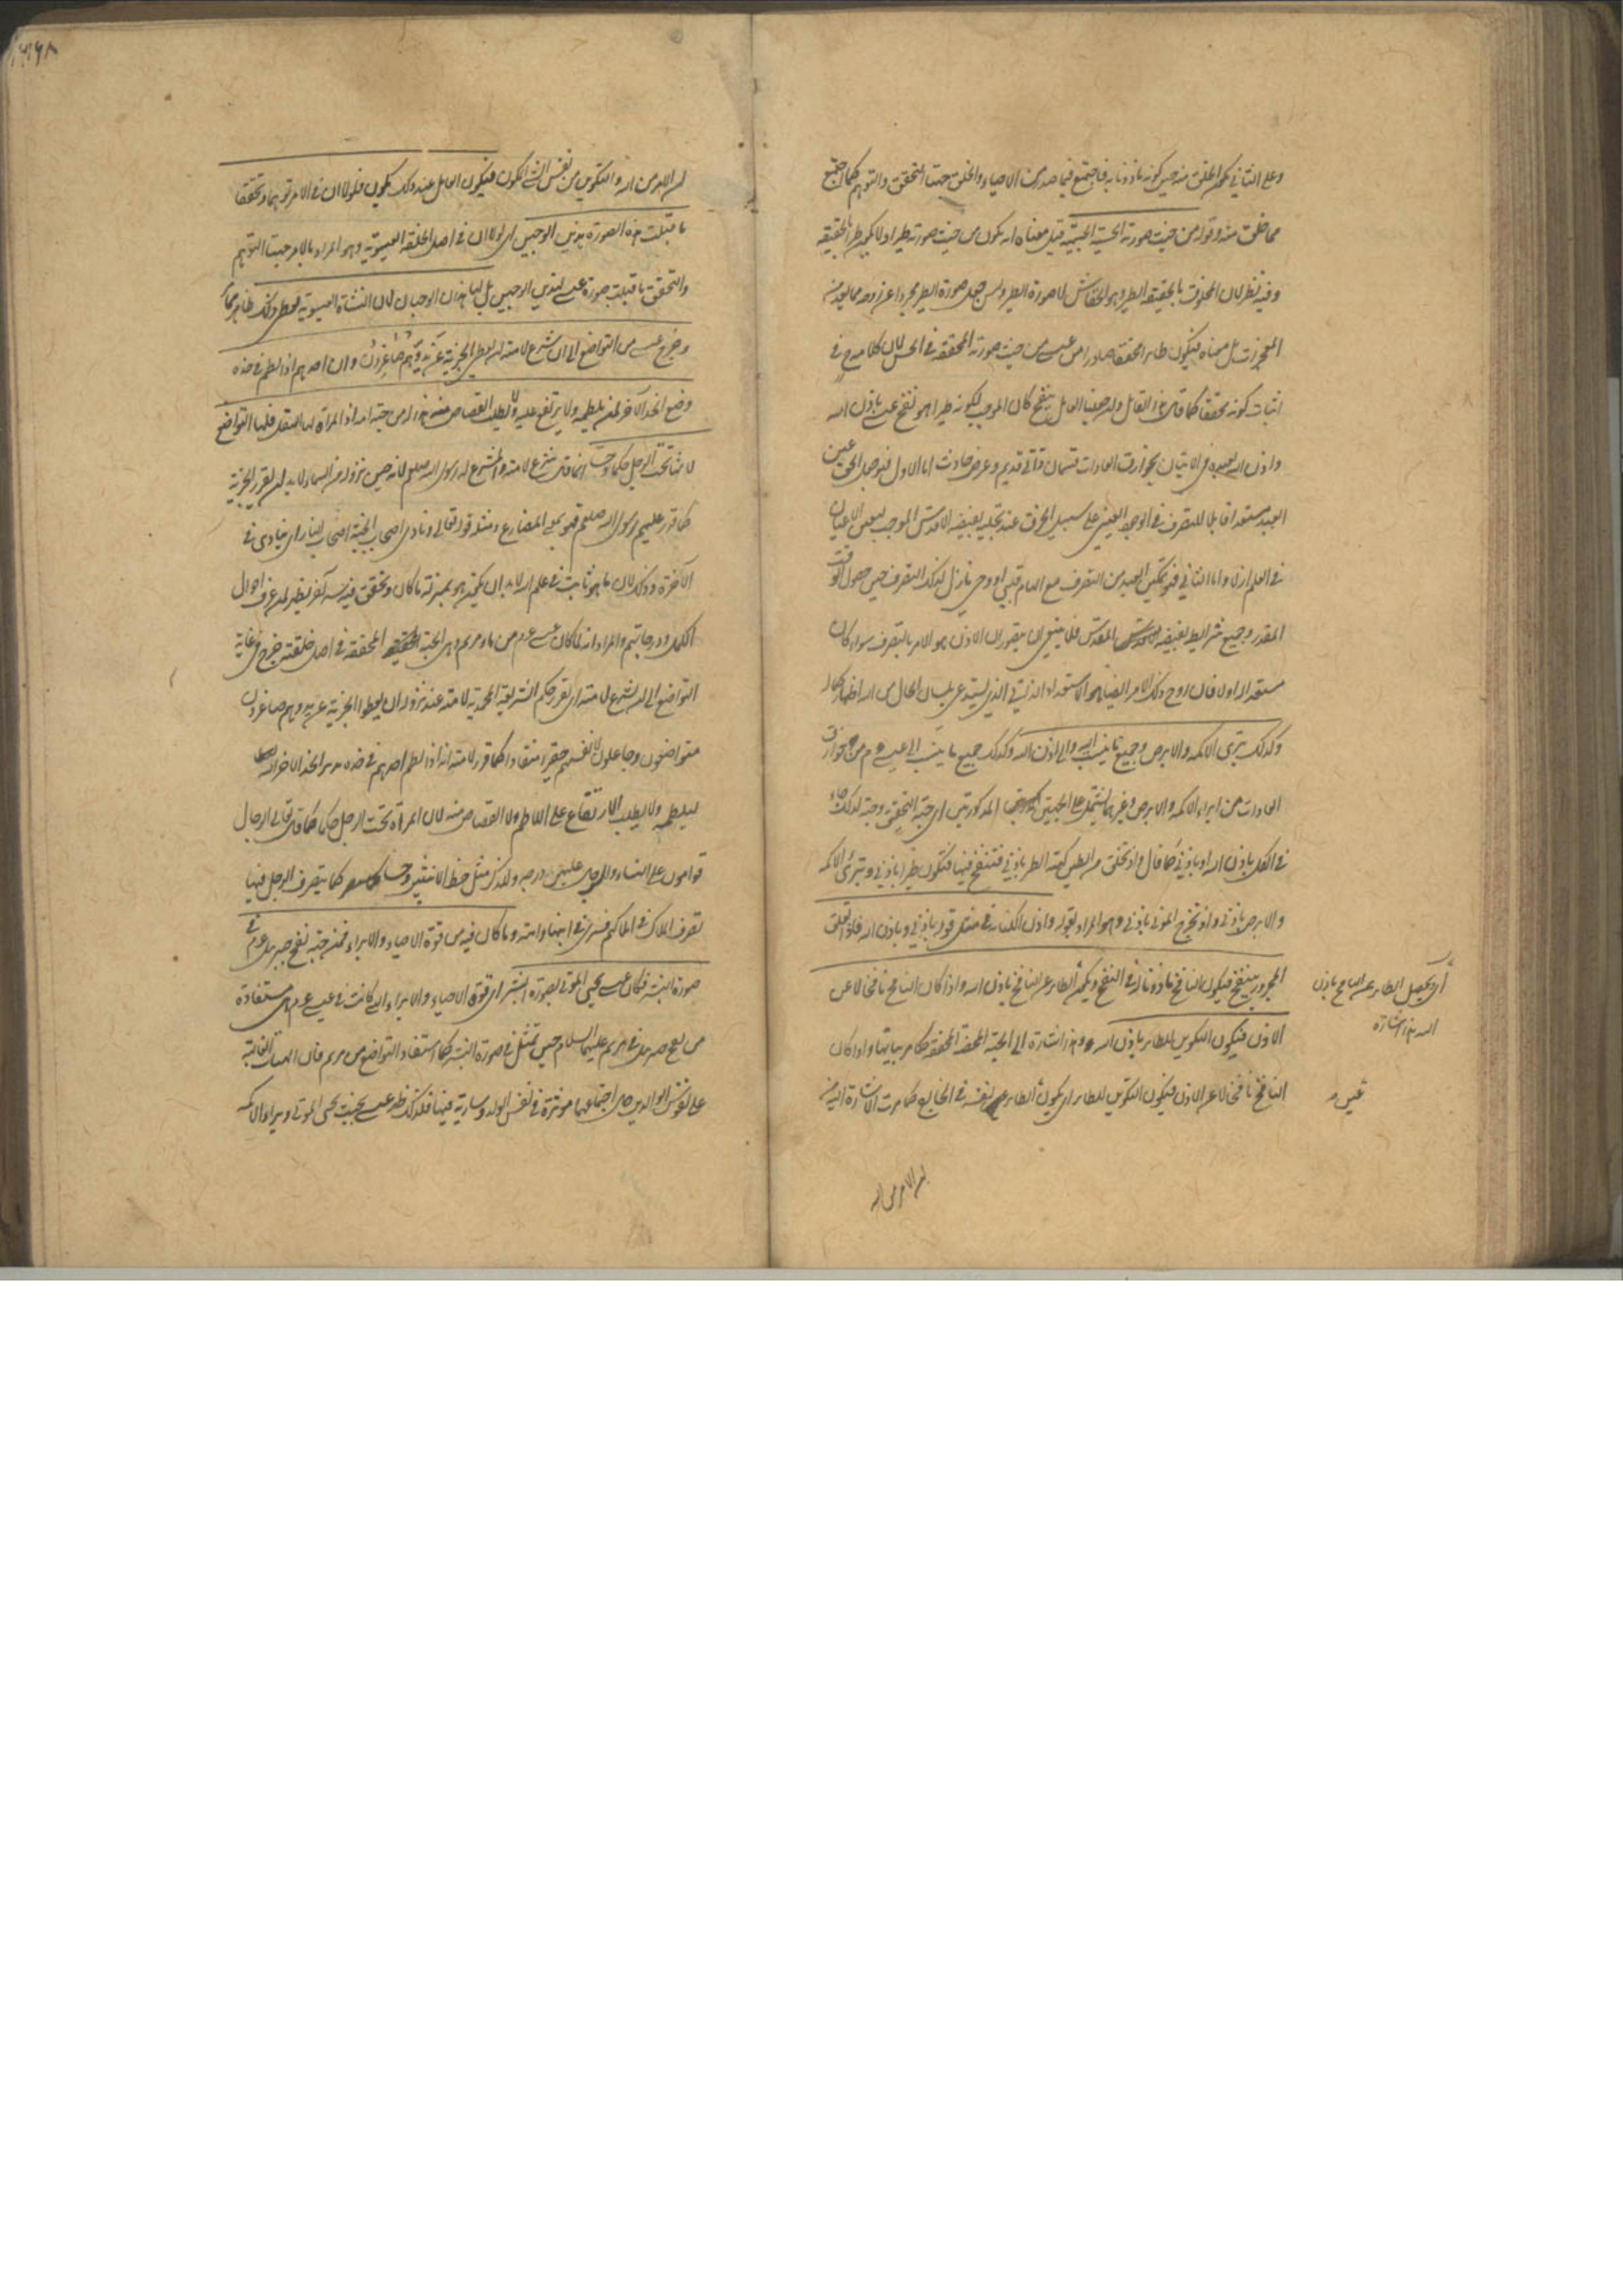 وعلى الثاني يكون الخلق منه حين كونه ماذونا به فاجتمع فيما صدر من الاحياء والخلق جهتا التحقق والتوهم كما اجتمع
مما خلق منه وقوله من حيث صورته الحسية الجسمية قيل معناه انه يكون من حيث صورته طيرا ولا يكون طيرا بالحقيقة
وفيه نظر لان المخلوق بالحقيقة الطير وهو الخفاش لا صورة الطير وليس جعل صورة الطير مجردا عن روحه مما يعد من
المعجزات بل معناه فيكون طائرا محققا صادرا من عيسى من حيث صورته المحققة في الحس لان كلامه في
اثبات كونه محققا كما قال العامل وله جعلنا العامل ينفخ كان الموجب لكونه طيرا هو نفخ عيسى باذن الله
واذن الله لعبيده في الاتيان بخوارق العادات قسمان ذاتي قديم وعرضي حادث اما الاول فهو جعل الحق عين
العبد مستعدا قابلا للتصرف في الوجود العيني على سبيل الخرق عند تجليه بفيضه الاقدس الموجب لتعين الاعيان
في العلم ازلا واما الثاني فهو تمكين العبد من التصرف مع الهام قلبي او وحي نازل لذلك التصرف حين حصول الوقت
المقدر وجميع شرائطه بفيضه المقدس فلا ينبغي ان يتصور ان الاذن هو الامر بالتصرف سواء كان
مستعدا له او لا فان روح ذلك الامر ايضا هو الاستعداد الذاتي الذي يستدعي بلسان الحال من الله اظهار كماله
وكذلك تبرئ الاكمه والابرص وجميع ما ينسب اليه والى اذن الله وكذلك جميع ما ينسب الى عيسى ع م من خوارق
العادات من ابراء الاكمه والابرص وغيرهما يشتمل على الجهتين المذكورتين اي جهة التحقق وجهة لذلك جاء
في الكل باذن الله او باذني كما قال واذ تخلق من الطين كهيئة الطير باذني فتنفخ فيها فتكون طيرا باذني وتبرئ الاكمه
والابرص باذني واذ تخرج الموتى باذني وهو المراد بقوله واذن الكناية في مثل قوله باذني وباذن الله فاذا تعلق
المجرور بينفخ فيكون النافخ ماذونا له في النفخ ويكون الطائر عن النافخ باذن الله واذا كان النافخ نافخا لا عن
الاذن فيكون التكوين للطائر باذن الله وهذا اشارة الى الجهة المحضة المحققة كما مر بيانها واذا كان
النافخ نافخا لا عن الاذن فيكون التكوين للطائر اي يكون الطائر بنفسه في الخارج كما مرت الاشارة اليه من
اي يحصل الطائر عن النافخ باذن
الله هذا اشارة
عيسى
ان الامر من الله
ان الامر من الله والتكوين من نفس الشئ المكون فيكون العامل عند ذلك يكون فلولا ان في الامر توهما وتحققا
ما قبلت هذه الصورة هذين الوجهين اي لولا ان في اصل الخلقة العيسوية وهو المراد بالامر جهتا التوهم
والتحقق ما قبلت صورة عيسى هذين الوجهين بل لها هذان الوجهان لان النشاة العيسوية تعطي ذلك ظاهر كما مر
وخرج عيسى من التواضع الى ان شرع لامته ان يعطوا الجزية عن يد وهم صاغرون وان احدهم اذا لطم في خده
وضع الخد الآخر لمن يلطمه ولا يرتفع عليه ولا يطلب القصاص منه هذا له من جهة امه اذ المراة لها السفل فلها التواضع
لانها تحت الرجل حكما وحسا انما قال شرع لامته والمشرع له رسول الله صلعم لانه حين نزوله من السماء لا بد ان يقرر الجزية
كما قرر عليهم رسول الله صلعم فهو بمعنى المضارع ومثله قوله تعالى ونادى اصحاب الجنة اصحاب النار اي ينادي في
الآخرة وذلك لان ما هو ثابت في علم الله لا بد ان يكون هو بمنزلة ما كان وتحقق فيه سر آخر يظهر لمن عرف احوال
الكمل ودرجاتهم والمراد انه لما كان عيسى ع م من ماء مريم وهي الجهة المحققة في اصل خلقته خرج في غاية
التواضع الى ان شرع لامته اي يقرر حكم الشريعة المحمدية لامته عند نزوله ان يعطوا الجزية عن يد وهم صاغرون
متواضعون وجاعلون لانفسهم حقيرا منقادا كما قرر لامته انه اذا لطم احدهم في خده الخد الآخر
ليلطمه ولا يطلب الارتفاع على اللاطم ولا القصاص منه لان المرأة تحت الرجل حكما كما قال تعالى الرجال
قوامون على النساء وللرجال عليهن درجة وللذكر مثل حظ الانثيين وحسا كما يتصرف الرجل فيها
تصرف الملاك في املاكهم فسرى في ابنها وامته وما كان فيه من قوة الاحياء والابراء فمن جهة نفخ جبرئيل ع م في
صورة البشر فكان عيسى يحيي الموتى بصورة البشر اي قوة الاحياء والابراء التي كانت في عيسى ع م هي مستفادة
من نفخ جبرئيل في مريم عليهما السلام حين تمثل في صورة البشر كما استفاد التواضع من مريم فان الهيئات الغالبة
على نفوس الوالدين حال اجتماعهما مؤثرة في نفس الولد وسارية فيها فلذلك ظهر عيسى بحيث يحيي الموتى ويبرئ الاكمه